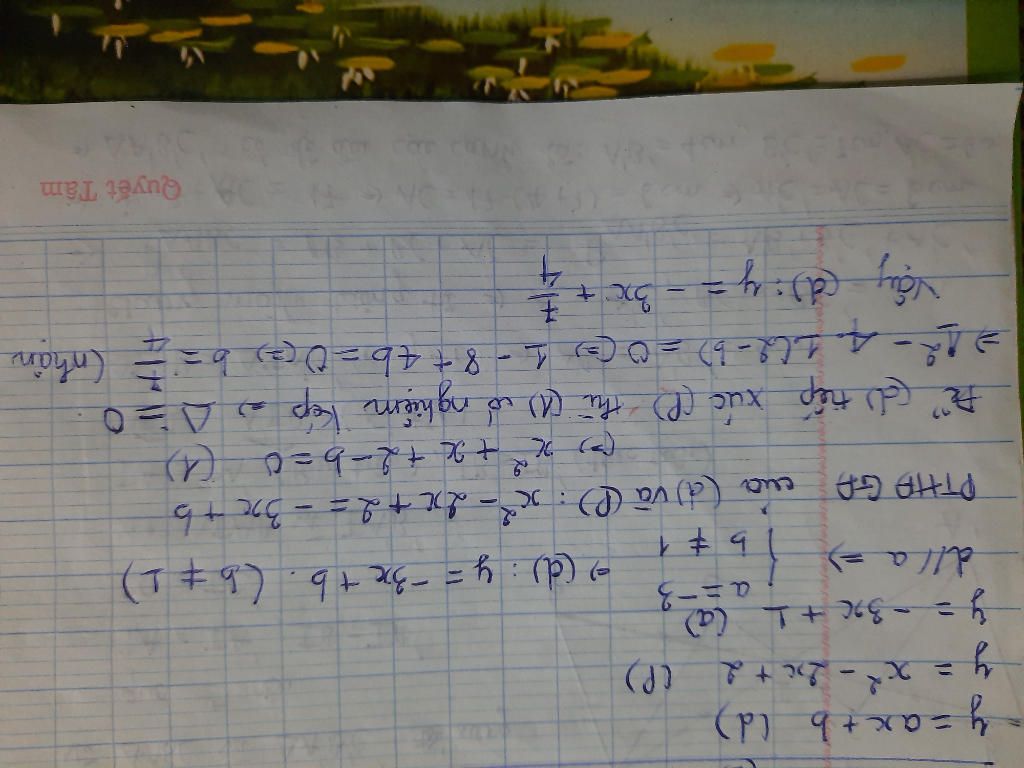 y = ax + b (d)
y = x² - 2x + 2 (P)
y = -3x + 1 (a)
d // a => { a = -3 b ≠ 1 => (d): y = -3x + b. (b ≠ 1)
PTHĐGĐ của (d) và (P): x² - 2x + 2 = -3x + b
(=) x² + x + 2 - b = 0 (1)
Để (d) tiếp xúc (P) thì (1) có nghiệm kép => Δ = 0
=> 1² - 4.1(2-b) = 0 (=) 1 - 8 + 4b = 0 (=) b = 7/4 (nhận
Vậy (d): y = -3x + 7/4
Quyết Tâm